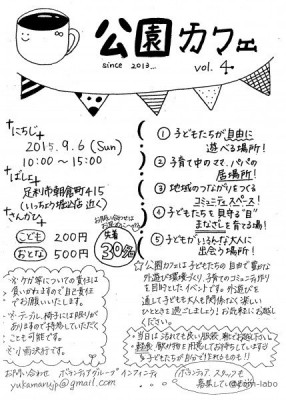 公園カフェ
since 2013... vol.4
にちじ
2015.9.6 (Sun)
10:00〜15:00
ばしょ
足利市朝倉町415
(いっちょう堀込店 近く)
さんかひ
こども 200円
おとな 500円
お問い合わせは
先着
30名
①子どもたちが自由に
遊べる場所!
② 子育て中のママ、パパの
居場所!
③ 地域のつながりをつくる
コミュニティスペース!
④ 子どもたちを見守る"目"
まなざしを育てる場!
⑤ 子どもがいろんな大人に
出会う場所!
※ケガ等についての責任は
負いかねますので自己責任
でお願いいたします。
※テーブル、椅子には限りが
ありますので持参していただく
ことも可能です。
※小雨決行です。
☆公園カフェは子どもたちの自由で豊かな
外遊びの環境づくり、子育てのコミュニティ作り
を目的としたイベントです。外遊びを
通して子どもも大人も関係なく楽しい
ひとときを過ごしましょう!お気軽にお越し
ください。
・当日は汚れても良い服装、靴でお越し下さい。
子どもたちが自分で作れるものも!!
お問い合わせ ボランティアグループ インフィニティ
yukamarujp@gmail.com
ボランティアスタッフも
募集しています